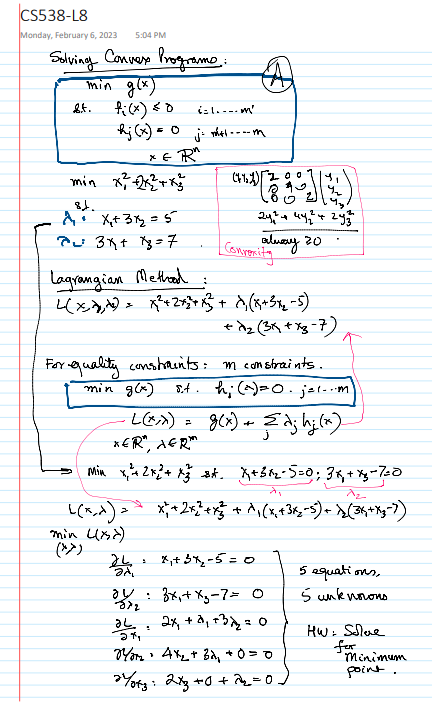 CS538-L8
Monday, February 6, 2023 5:04 PM
Solving Convex Programs:
A
min g(x)
s.t. fi(x) ≤ 0 i=1....m'
hj(x) = 0 j= m'+1....m
x ∈ ℝⁿ
min x₁²+2x₂²+x₃²
s.t.
λ₁: x₁+3x₂ = 5
λ₂: 3x₁+ x₃ = 7
2 0 0
0 4 0
0 0 2
y₁
y₂
y₃
2y₁²+4y₂²+2y₃²
always ≥ 0
Convexity
Lagrangian Method:
L(x,λ₁,λ₂) = x₁²+2x₂²+x₃² + λ₁(x₁+3x₂-5)
+ λ₂(3x₁+x₃-7)
For equality constraints: m constraints.
min g(x) s.t. hj(x)=0. j=1...m
L(x,λ) = g(x) + Σj λj hj(x)
x∈ℝⁿ, λ∈ℝᵐ
Min x₁²+2x₂²+x₃² s.t. x₁+3x₂-5=0; 3x₁+x₃-7=0
λ₁ λ₂
L(x,λ) = x₁²+2x₂²+x₃² + λ₁(x₁+3x₂-5)+λ₂(3x₁+x₃-7)
min L(x,λ)
(x,λ)
∂L/∂λ₁ : x₁+3x₂-5 = 0
∂L/∂λ₂ : 3x₁+x₃-7= 0
∂L/∂x₁ : 2x₁+λ₁+3λ₂ = 0
∂L/∂x₂ : 4x₂+3λ₁+0 = 0
∂L/∂x₃ : 2x₃+0+λ₂ = 0
5 equations,
5 unknowns
HW: Solve
for
minimum
point.